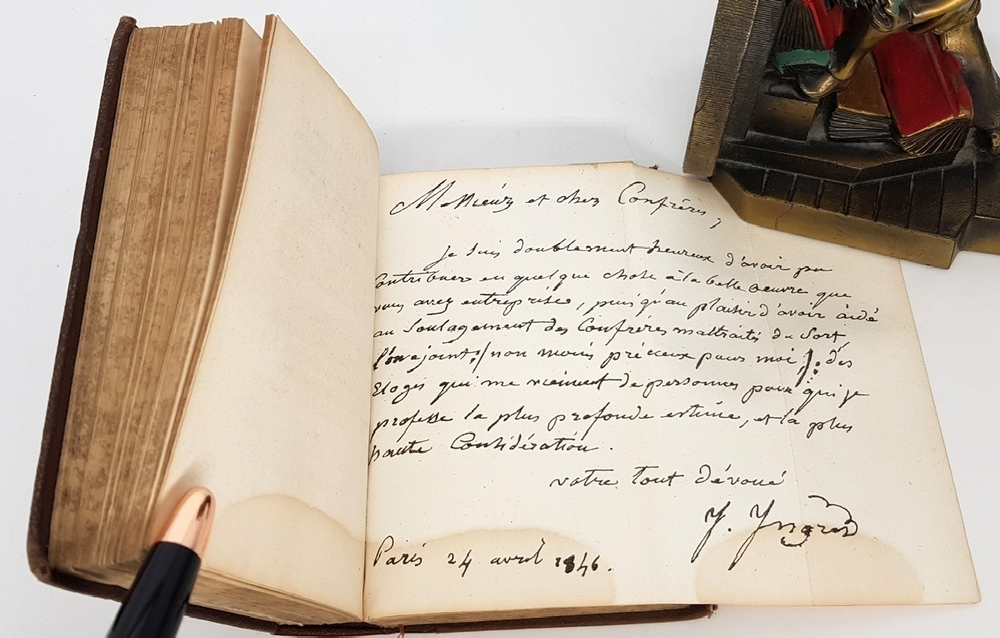 Messieurs et chers Confrères,
Je suis doublement heureux d'avoir pu
contribuer en quelque chose à la belle oeuvre que
vous avez entreprise, puisqu'au plaisir d'avoir aidé
au soulagement des Confrères maltraités du Sort
l'on ajoint, (non moins précieux pour moi,): des
Eloges qui me viennent de personnes pour qui je
professe la plus profonde estime, et la plus
haute Considération.
votre tout dévoué
J. Ingres
Paris 24 avril 1846.